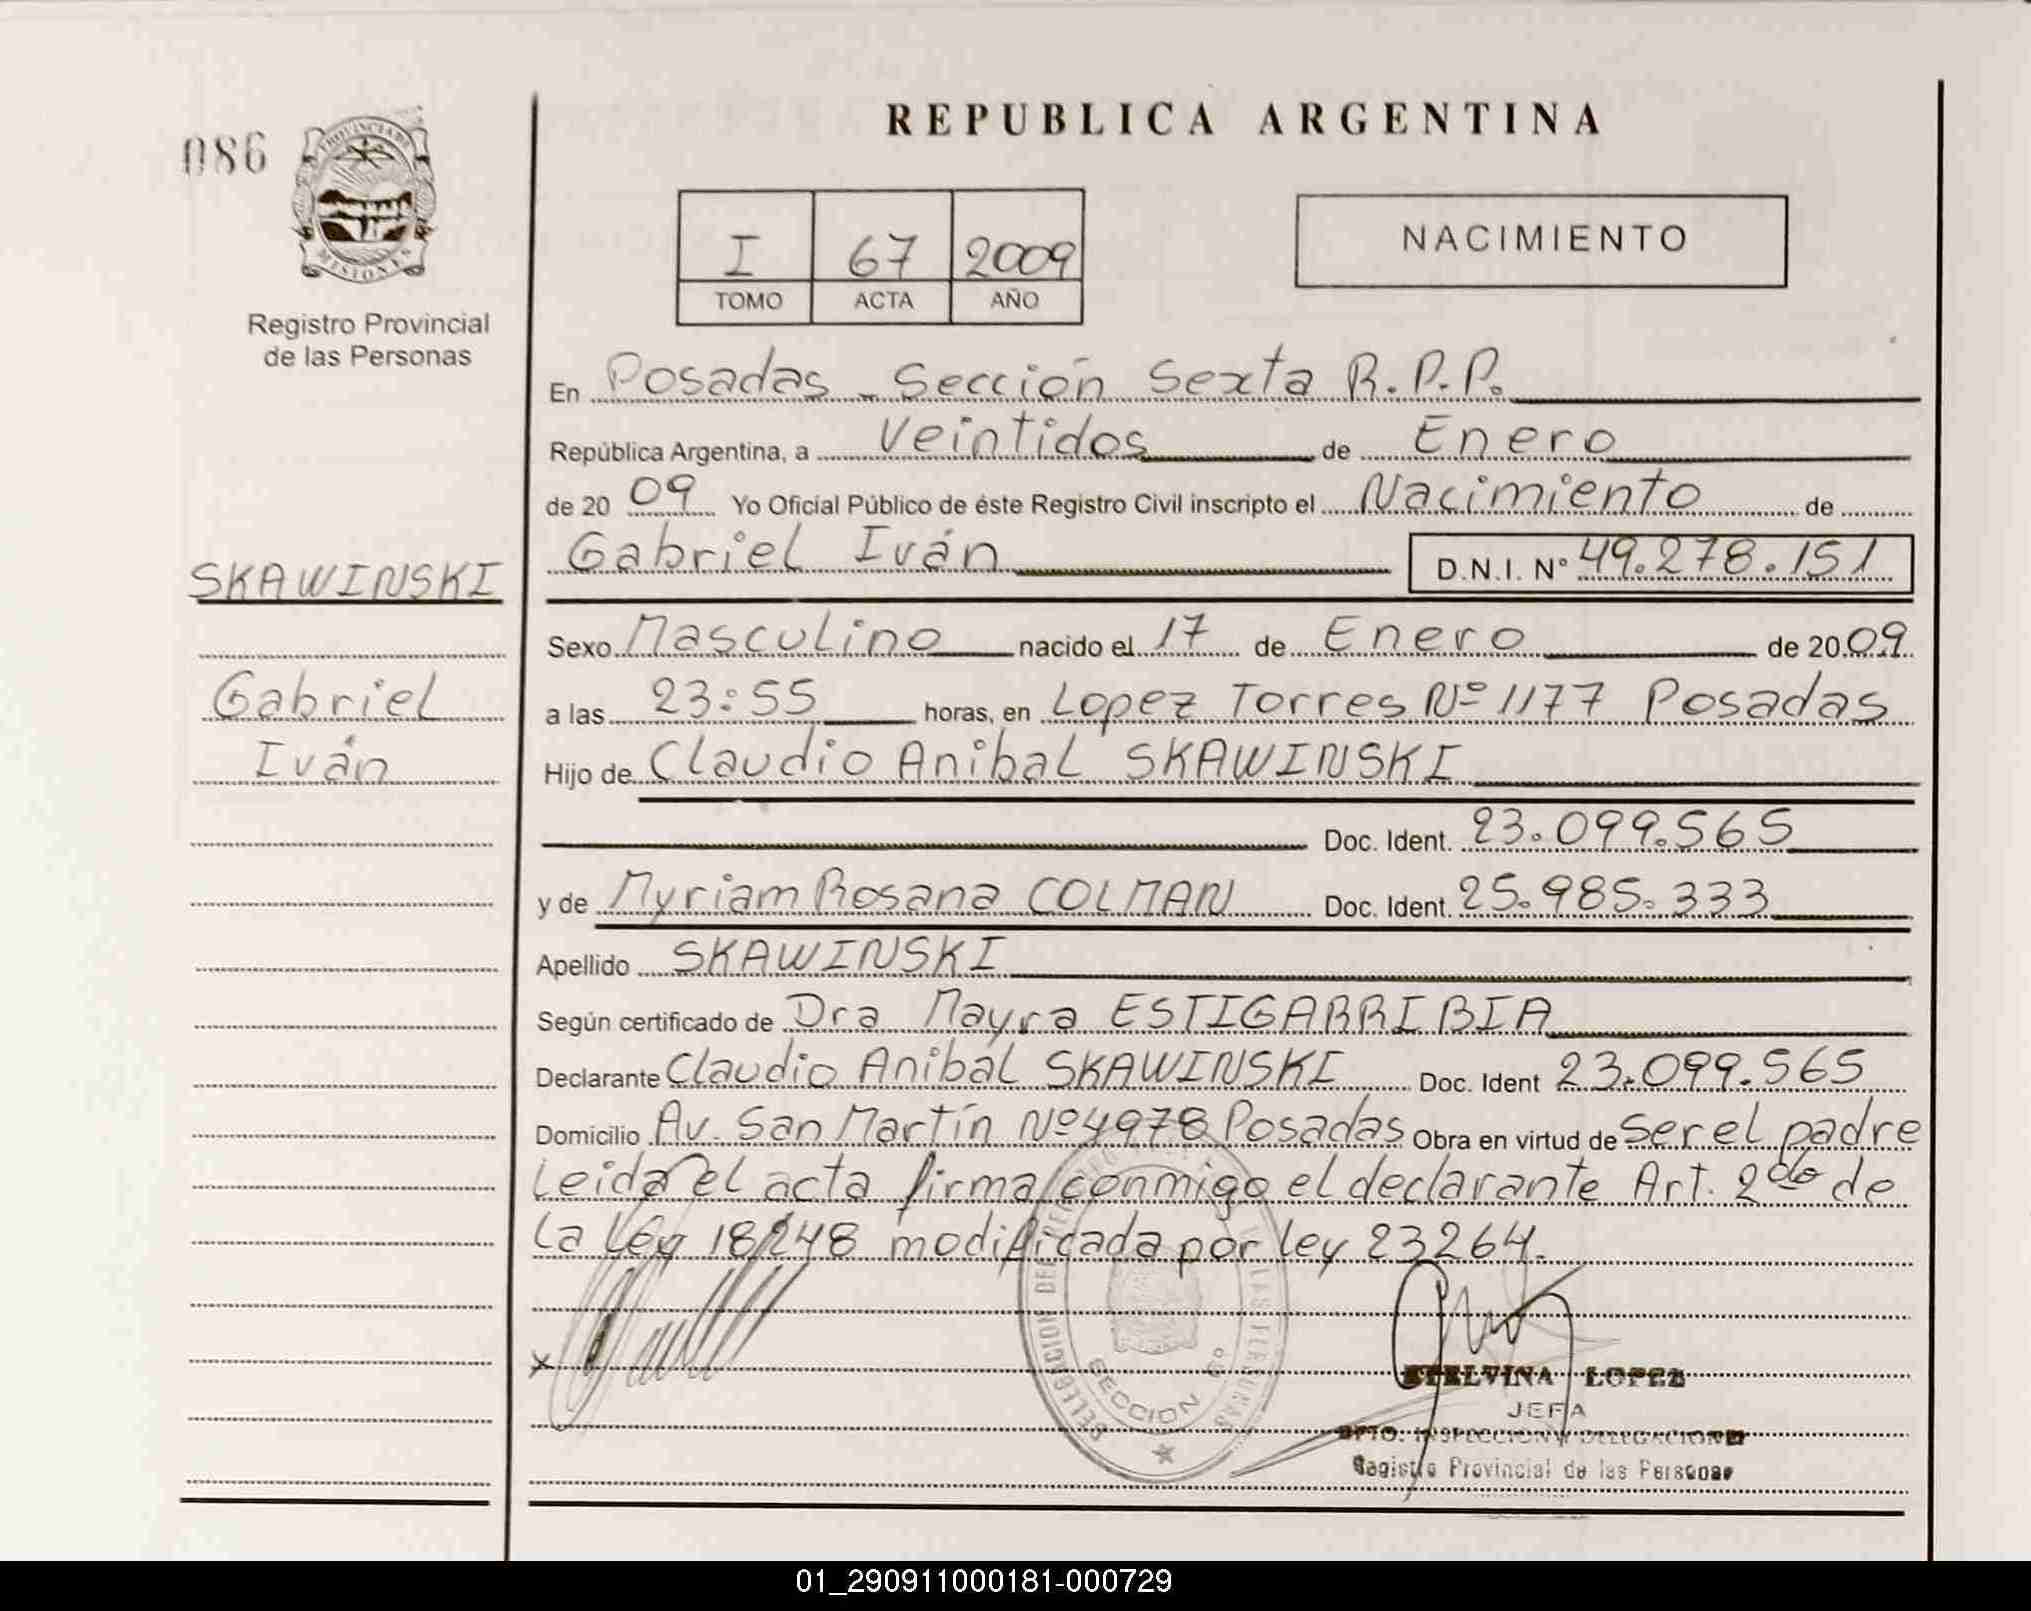 REPUBLICA ARGENTINA
086
PROVINCIA DE
MISIONES
Registro Provincial
de las Personas
I 67 2009
TOMO ACTA AÑO
NACIMIENTO
En Posadas - Sección Sexta R.P.P.
República Argentina, a Veintidos de Enero
de 2009 Yo Oficial Público de éste Registro Civil inscripto el Nacimiento de
Gabriel Iván D.N.I. Nº 49.278.151
SKAWINSKI
Gabriel
Iván
Sexo Masculino nacido el 17 de Enero de 2009
a las 23:55 horas, en Lopez Torres Nº 1177 Posadas
Hijo de Claudio Anibal SKAWINSKI
Doc. Ident. 23.099.565
y de Myriam Rosana COLMAN Doc. Ident. 25.985.333
Apellido SKAWINSKI
Según certificado de Dra Mayra ESTIGARRIBIA
Declarante Claudio Anibal SKAWINSKI Doc. Ident 23.099.565
Domicilio Av. San Martín Nº 4978 Posadas Obra en virtud de ser el padre
Leida el acta firma conmigo el declarante Art. 2do de
la Ley 18248 modificada por ley 23264.
SECCION 6º
x
ETELVINA LOPEZ
JEFA
DPTO. INSPECCION Y DELEGACIONES
Registro Provincial de las Personas
01_290911000181-000729